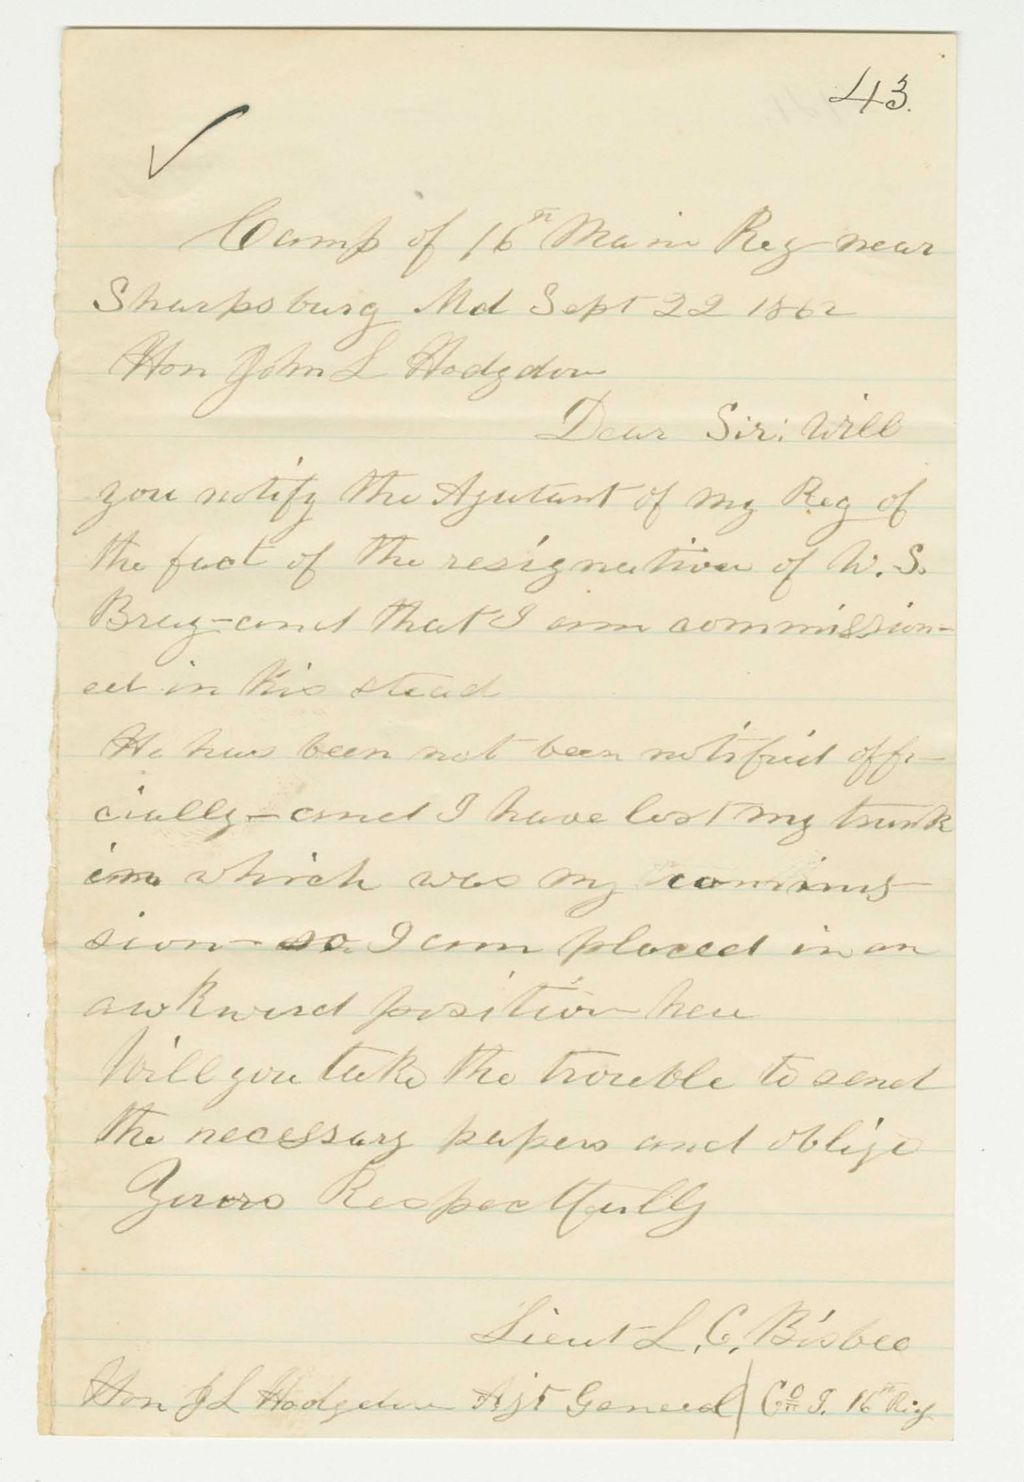 43.
Camp of 16th Main Reg near
Sharpsburg Md Sept 22 1862
Hon John L Hodgdon
Dear Sir: Will
you notify the Ajutant of my Reg of
the fact of the resignation of W. S.
Bray-and that I am commission-
ed in his stead
He has been not been notified offi-
cially-and I have lost my trunk
in which was my commis-
sion-so I am placed in an
awkward position here
Will you take the trouble to send
the necessary papers and oblige
Yours Respectfully
Lieut L. C. Bisbee
Hon J L Hodgdon Ajt General Co I. 16th Reg